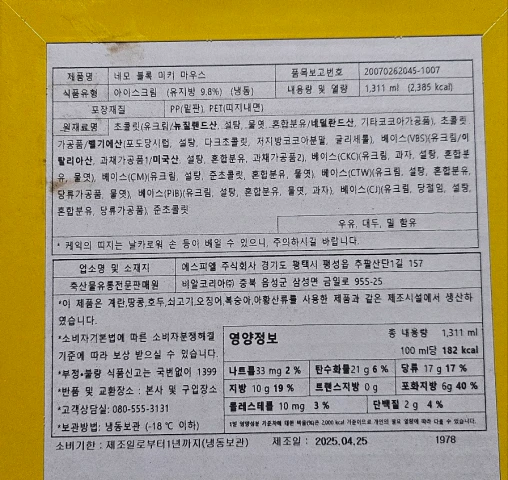 제품명 네모 블록 미키 마우스 품목보고번호 20070262045-1007
식품유형 아이스크림 (유지방 9.8%) (냉동) 내용량 및 열량 1,311 ml (2,385 kcal)
포장재질 PP(밑판), PET(띠지내면)
원재료명 초콜릿(유크림/뉴질랜드산, 설탕, 물엿, 혼합분유/네덜란드산, 기타코코아가공품), 초콜릿
가공품/벨기에산(포도당시럽, 설탕, 다크초콜릿, 저지방코코아분말, 글리세롤), 베이스(VBS)(유크림/이
탈리아산, 과채가공품1/미국산, 설탕, 혼합분유, 과채가공품2), 베이스(CKC)(유크림, 과자, 설탕, 혼합분
유, 물엿), 베이스(CM)(유크림, 설탕, 준초콜릿, 혼합분유, 물엿), 베이스(CTW)(유크림, 설탕, 혼합분유,
당류가공품, 물엿), 베이스(PIB)(유크림, 설탕, 혼합분유, 물엿, 과자), 베이스(CJ)(유크림, 당절임, 설탕,
혼합분유, 당류가공품), 준초콜릿
우유, 대두, 밀 함유
* 케익의 띠지는 날카로워 손 등이 베일 수 있으니, 주의하시길 바랍니다.
업소명 및 소재지 에스피엘 주식회사 경기도 평택시 평성읍 추팔산단1길 157
축산물유통전문판매원 비알코리아㈜ 충북 음성군 삼성면 금일로 955-25
*이 제품은 계란,땅콩,호두,쇠고기,오징어,복숭아,아황산류를 사용한 제품과 같은 제조시설에서 생산하
였습니다.
*소비자기본법에 따른 소비자분쟁해결
기준에 따라 보상 받으실 수 있습니다.
*부정•불량 식품신고는 국번없이 1399
*반품 및 교환장소 : 본사 및 구입장소
*고객상담실: 080-555-3131
*보관방법: 냉동보관 (-18℃ 이하)
영양정보 총 내용량 1,311 ml
100 ml당 182 kcal
나트륨33 mg 2 % 탄수화물21 g 6 % 당류 17 g 17 %
지방 10 g 19 % 트랜스지방 0 g 포화지방 6g 40 %
콜레스테롤 10 mg 3 % 단백질 2 g 4 %
1일 영양성분 기준치에 대한 비율(%)은 2,000 kcal 기준이므로 개인의 필요 열량에 따라 다를 수 있습니다.
소비기한 : 제조일로부터1년까지(냉동보관) 제조일 : 2025.04.25 1978